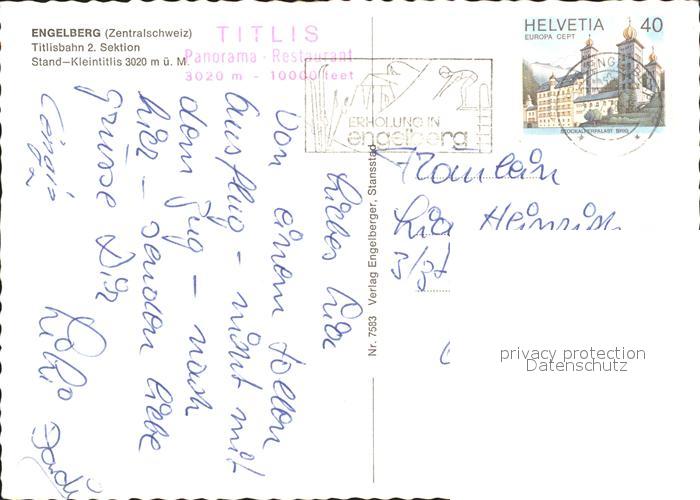 ENGELBERG (Zentralschweiz)
Titlisbahn 2. Sektion
Stand-Kleintitlis 3020 m ü. M.
TITLIS
Panorama - Restaurant
3020 m - 10000 feet
ERHOLUNG IN
engelberg
HELVETIA 40
EUROPA CEPT
STOCKALPERPALAST BRIG
Liebes Lia
Von einem tollen
Ausflug - nicht mit
dem Zug - nach
hier - senden liebe
Grüsse Dir
Nr. 7583 Verlag Engelberger, Stansstad
Fräulein
Lia Heinrich
privacy protection
Datenschutz